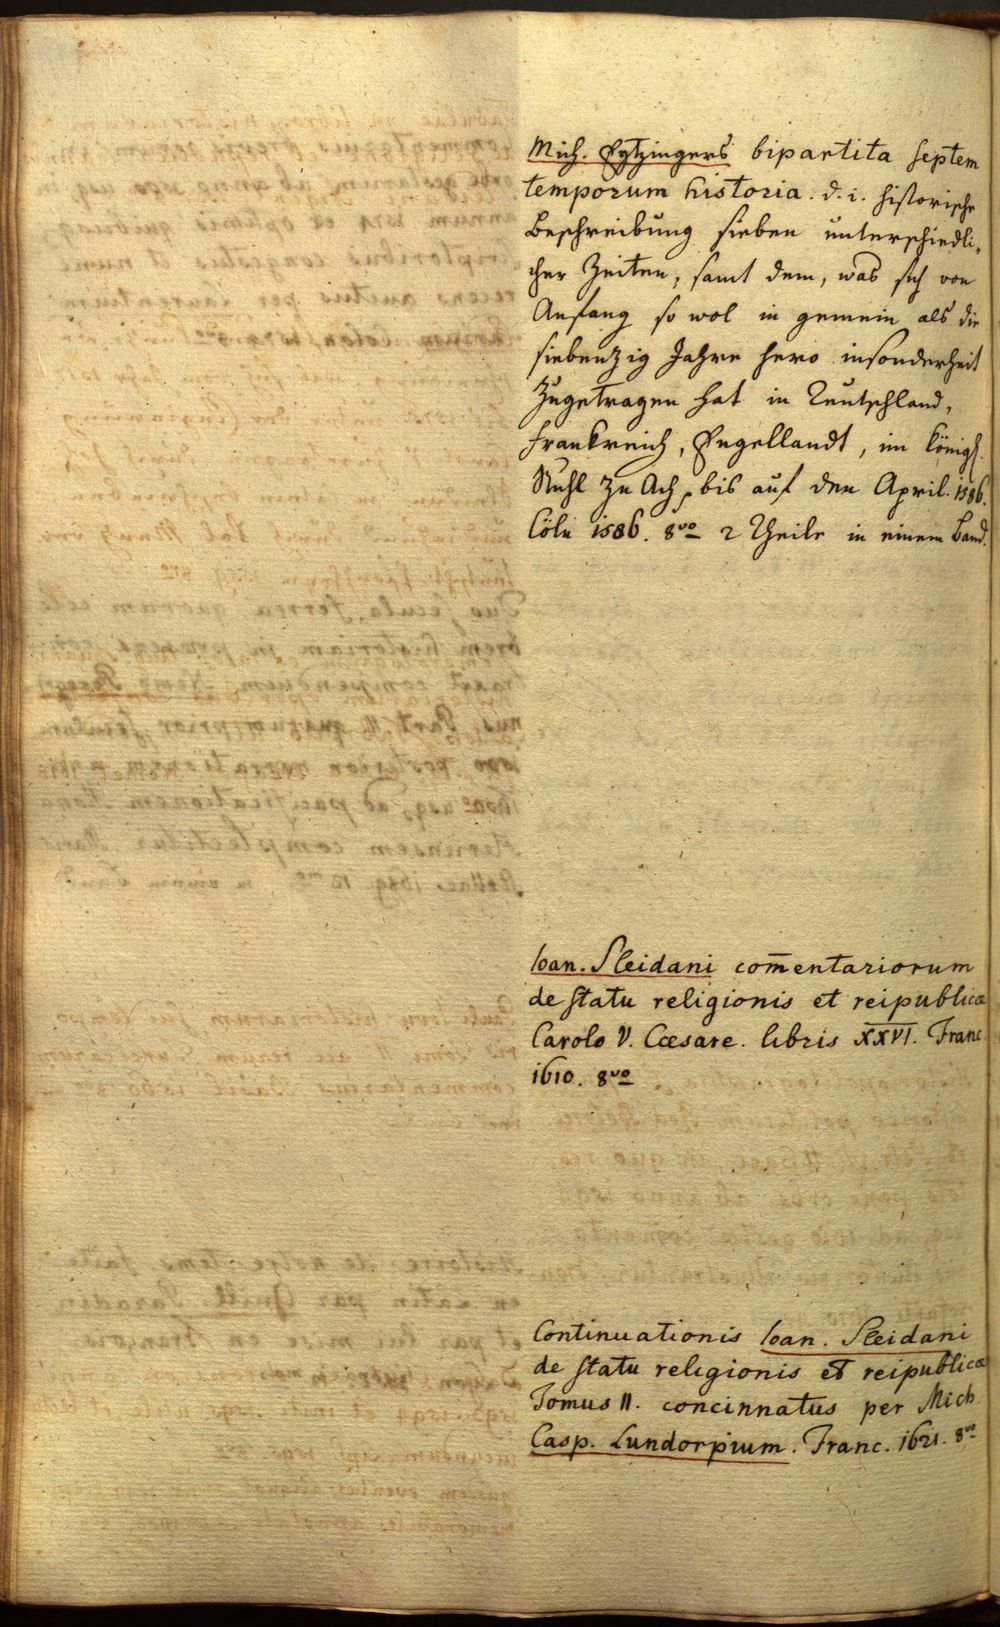 Mich. Eytzingers bipartita septem
temporum historia. d. i. historische
Beschreibung sieben unterschiedli-
cher Zeiten, samt dem, was sich von
Anfang so wol in gemein als die
siebenzig Jahre hero insonderheit
zugetragen hat in Teutschland,
Frankreich, Engellandt, im Königl.
Stuhl zu Ach, bis auf den April. 1586.
Cöln 1586. 8vo 2 Theile in einem Band.
Ioan. Sleidani com̄entariorum
de statu religionis et reipublicæ
Carolo V. Cæsare. libris XXVI. Franc.
1610. 8vo
Continuationis Ioan. Sleidani
de statu religionis et reipublicæ
Tomus II. concinnatus per Mich.
Casp. Lundorpium. Franc. 1621. 8vo